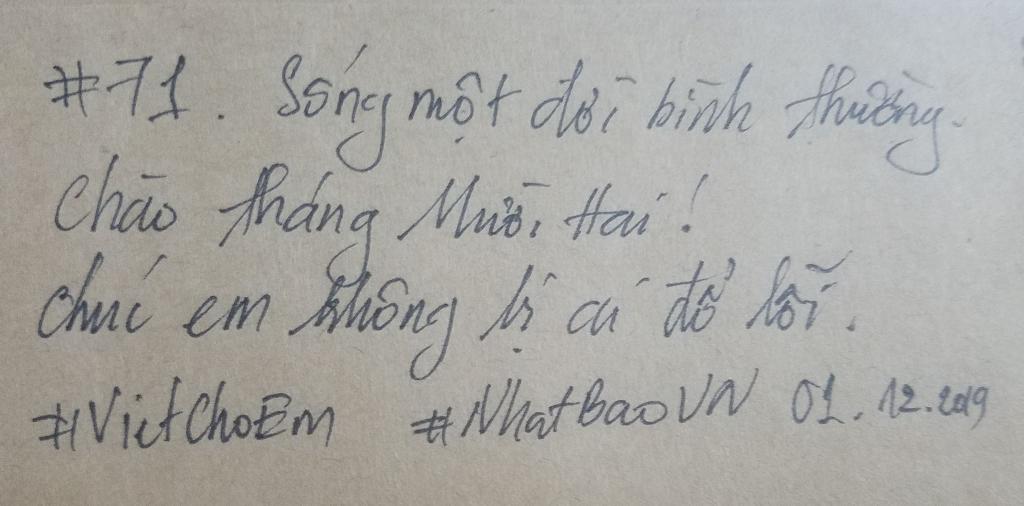 #71. Sống một đời bình thường.
Chào tháng Mười Hai!
Chúc em không bị ai đổ lỗi.
#VietChoEm #NhatBaoVN 01.12.2019